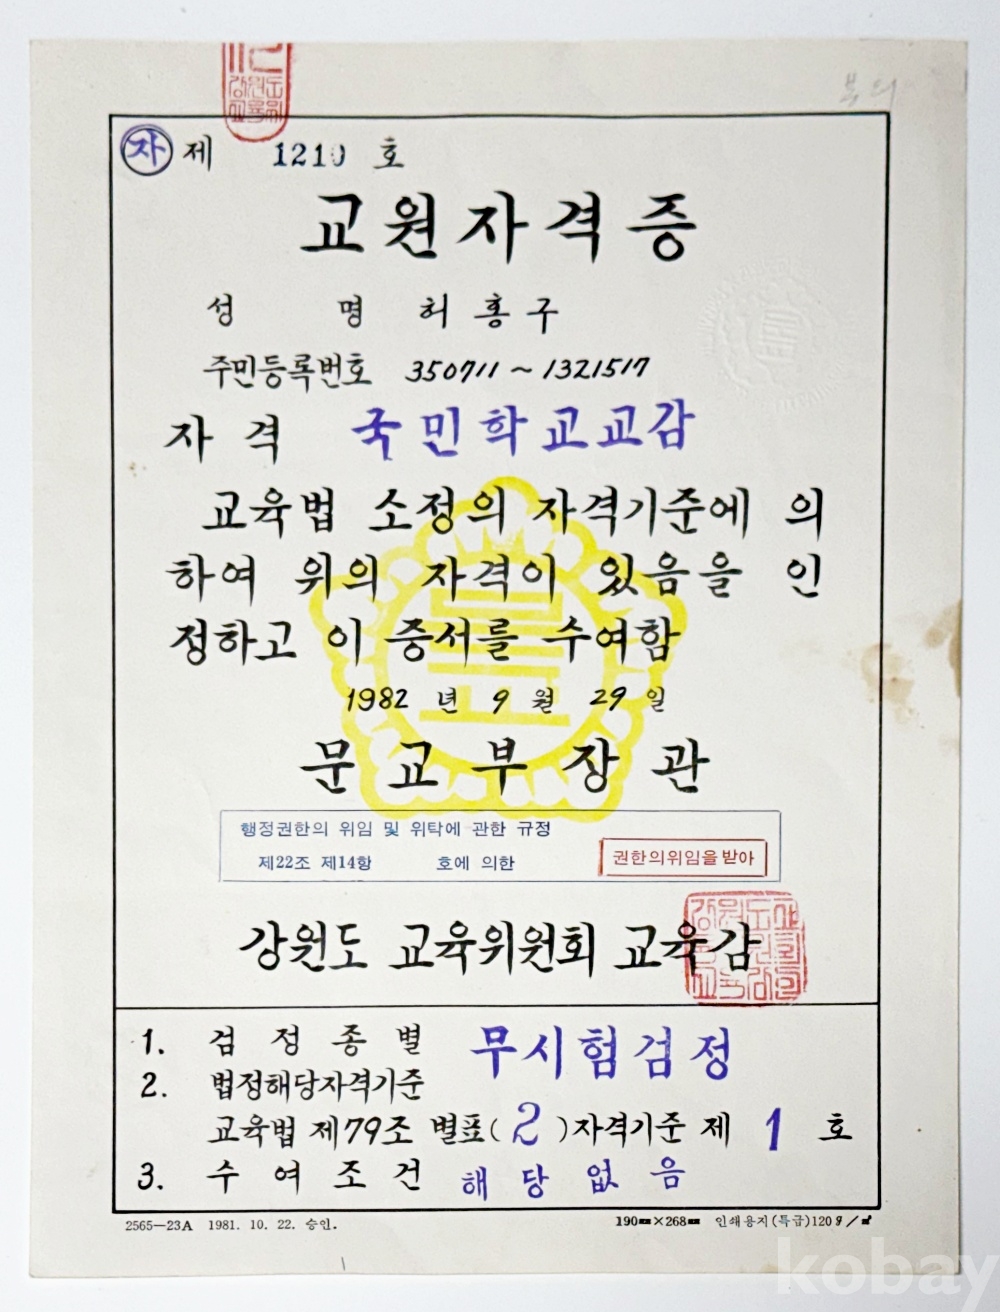 자 제 1210 호
교원자격증
성 명 허홍구
주민등록번호 350711~1321517
자격 국민학교교감
교육법 소정의 자격기준에 의
하여 위의 자격이 있음을 인
정하고 이 증서를 수여함
1982 년 9 월 29 일
문교부장관
행정권한의 위임 및 위탁에 관한 규정
제22조 제14항 호에 의한
권한의위임을받아
강원도 교육위원회 교육감
1. 검정종별 무시험검정
2. 법정해당자격기준
교육법 제79조 별표(2)자격기준 제 1 호
3. 수여조건 해당없음
2565—23A 1981. 10. 22. 승인.
190㎜×268㎜ 인쇄용지(특급)120g/㎡
kobay